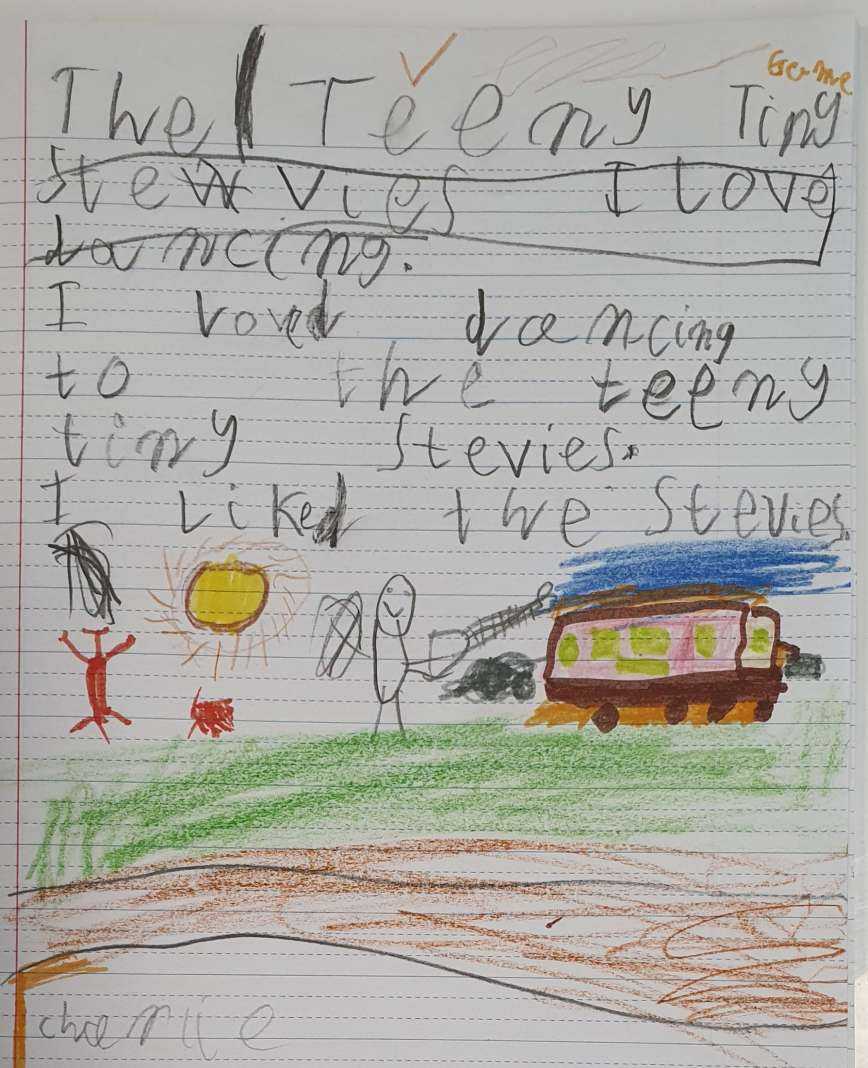 The Teeny Tiny
Stevies I Love
dancing.
I loved dancing
to the teeny
tiny Stevies.
I Liked the Stevies.
charlie